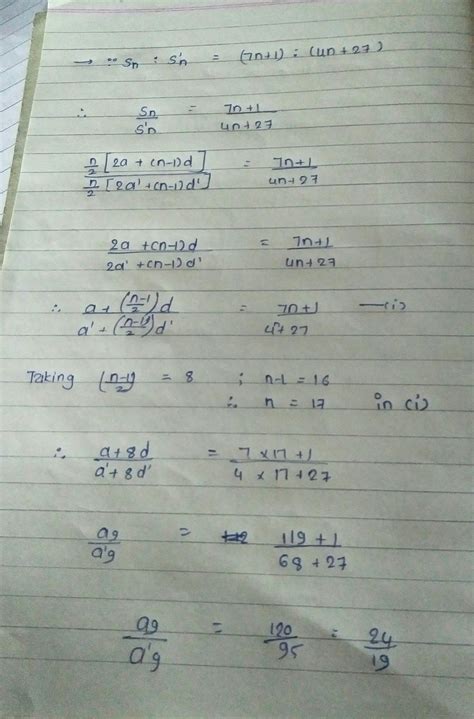 → ∵ Sn : S'n = (7n+1) : (4n+27)
∴ Sn/S'n = 7n+1/4n+27
n/2 [2a + (n-1)d] / n/2 [2a' + (n-1)d'] = 7n+1/4n+27
2a + (n-1)d / 2a' + (n-1)d' = 7n+1/4n+27
∴ a + (n-1/2)d / a' + (n-1/2)d' = 7n+1/4n+27 —(i)
Taking (n-1/2) = 8 ; n-1 = 16
∴ n = 17 in (i)
∴ a+8d/a'+8d' = 7×17+1/4×17+27
a9/a'9 = 119+1/68+27
a9/a'9 = 120/95 = 24/19